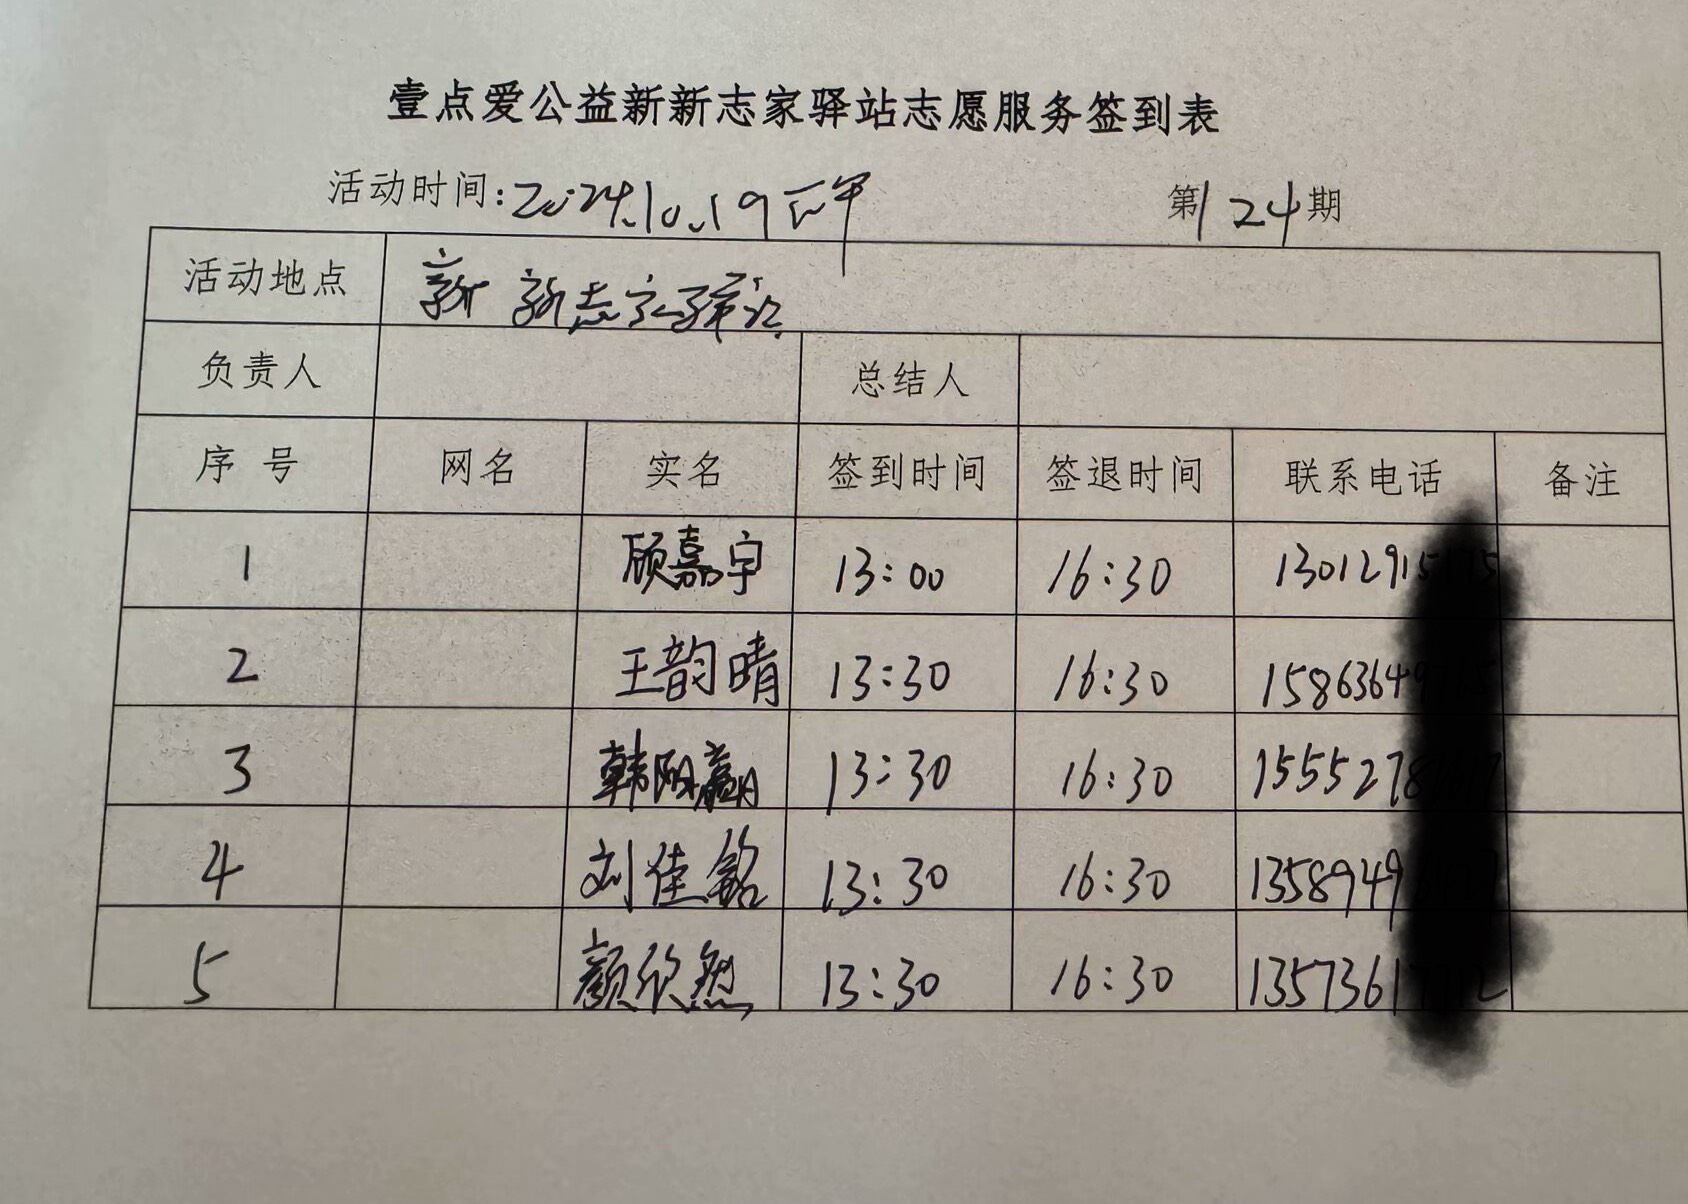 壹点爱公益新新志家驿站志愿服务签到表
活动时间:2024.10.19下午 第124期
活动地点 新新志家驿站
负责人 总结人
序号 网名 实名 签到时间 签退时间 联系电话 备注
1 顾嘉宇 13:00 16:30
2 王韵晴 13:30 16:30
3 韩阳赢 13:30 16:30
4 刘佳铭 13:30 16:30
5 颜欣然 13:30 16:30